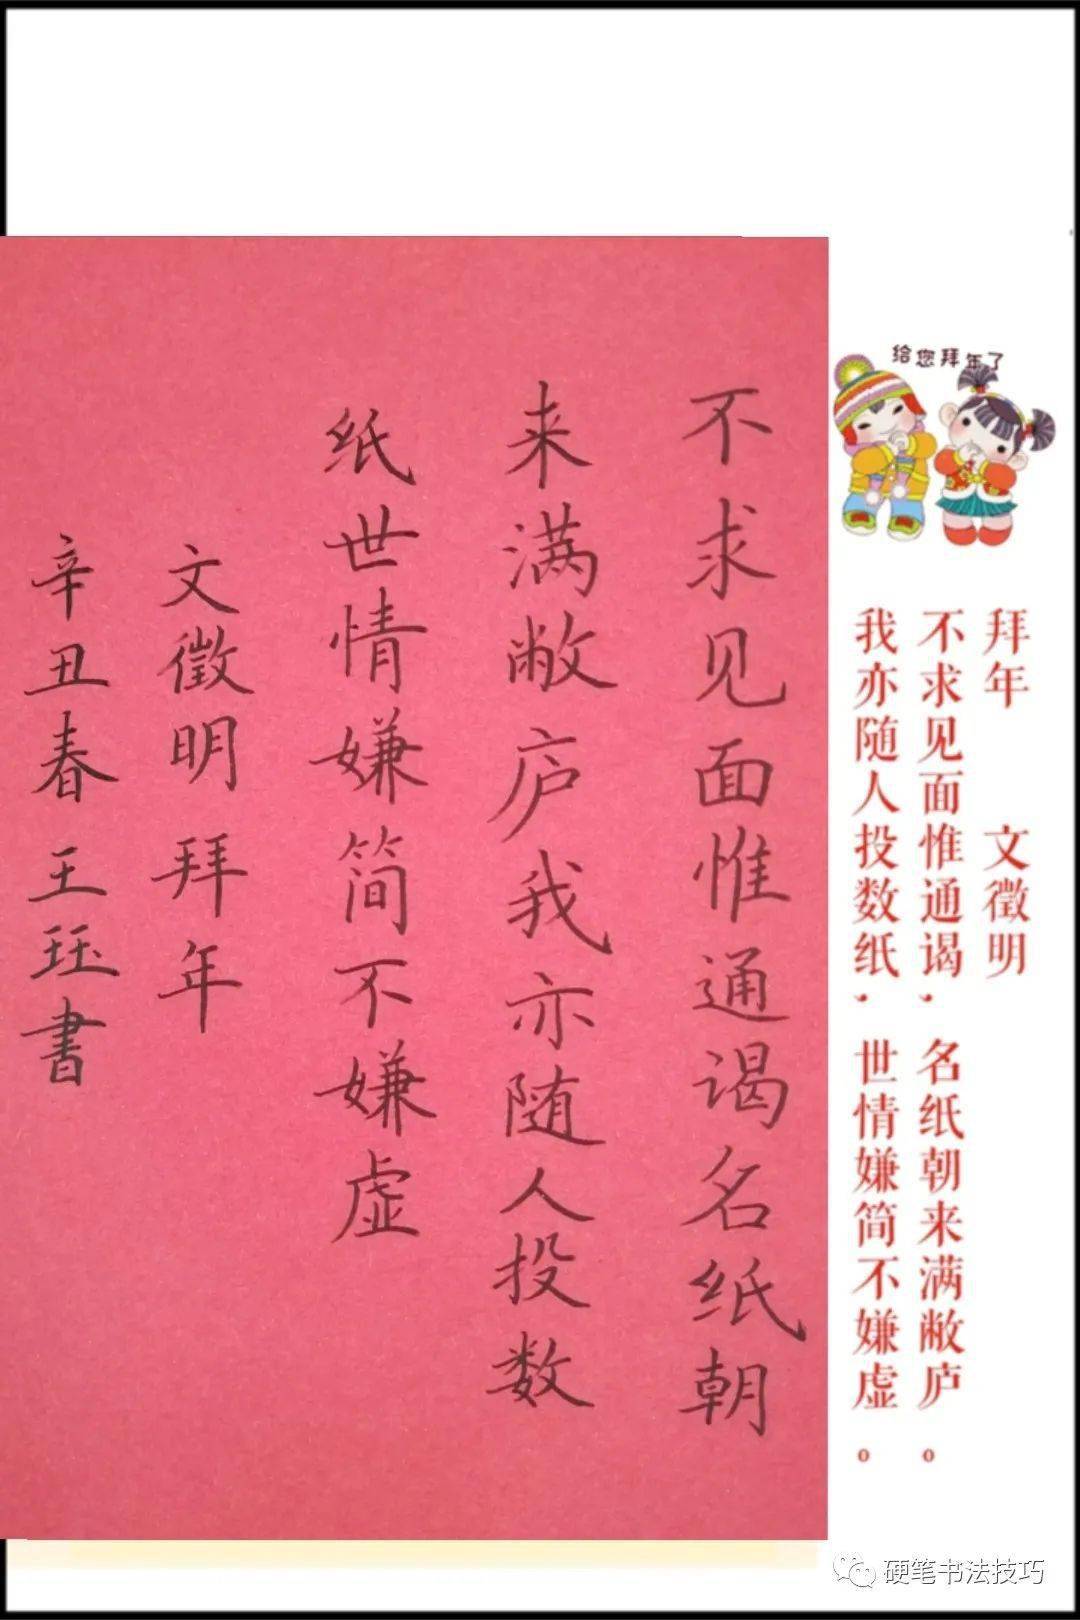 给您拜年了
拜年 文徵明
不求见面惟通谒，名纸朝来满敝庐。
我亦随人投数纸，世情嫌简不嫌虚。
不求见面惟通谒名纸朝
来满敝庐我亦随人投数
纸世情嫌简不嫌虚
文徵明拜年
辛丑春王珏書
硬笔书法技巧